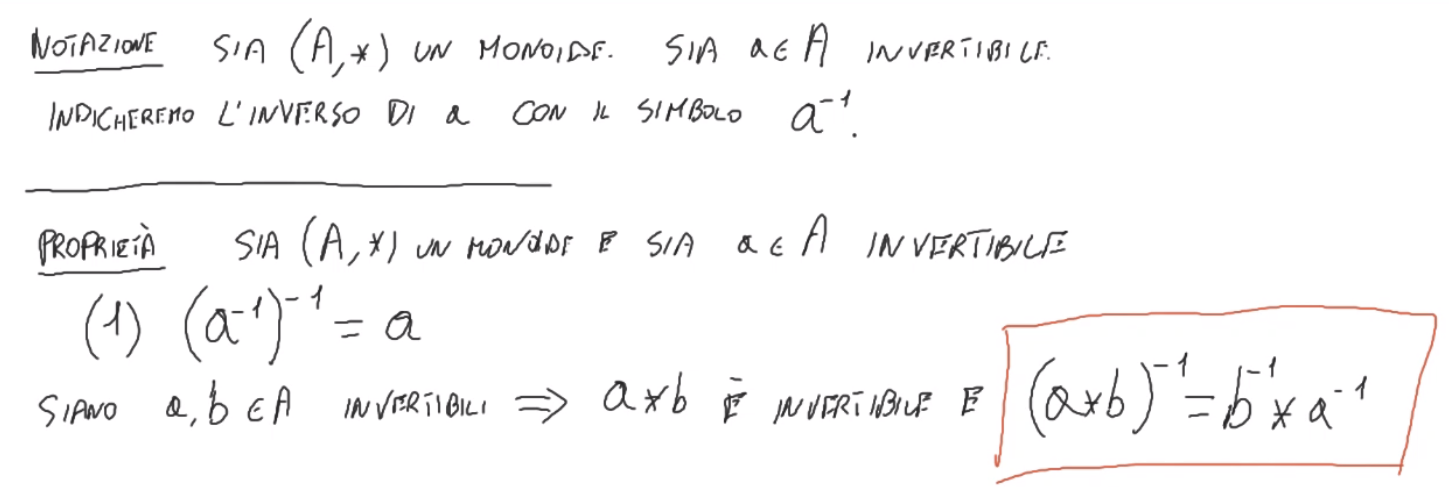 NOTAZIONE SIA (A,*) UN MONOIDE. SIA a∈A INVERTIBILE.
INDICHEREMO L'INVERSO DI a CON IL SIMBOLO a⁻¹.
PROPRIETÀ SIA (A,*) UN MONOIDE E SIA a∈A INVERTIBILE
(1) (a⁻¹)⁻¹ = a
SIANO a,b ∈A INVERTIBILI ⇒ a*b È INVERTIBILE E (a*b)⁻¹ = b⁻¹ * a⁻¹